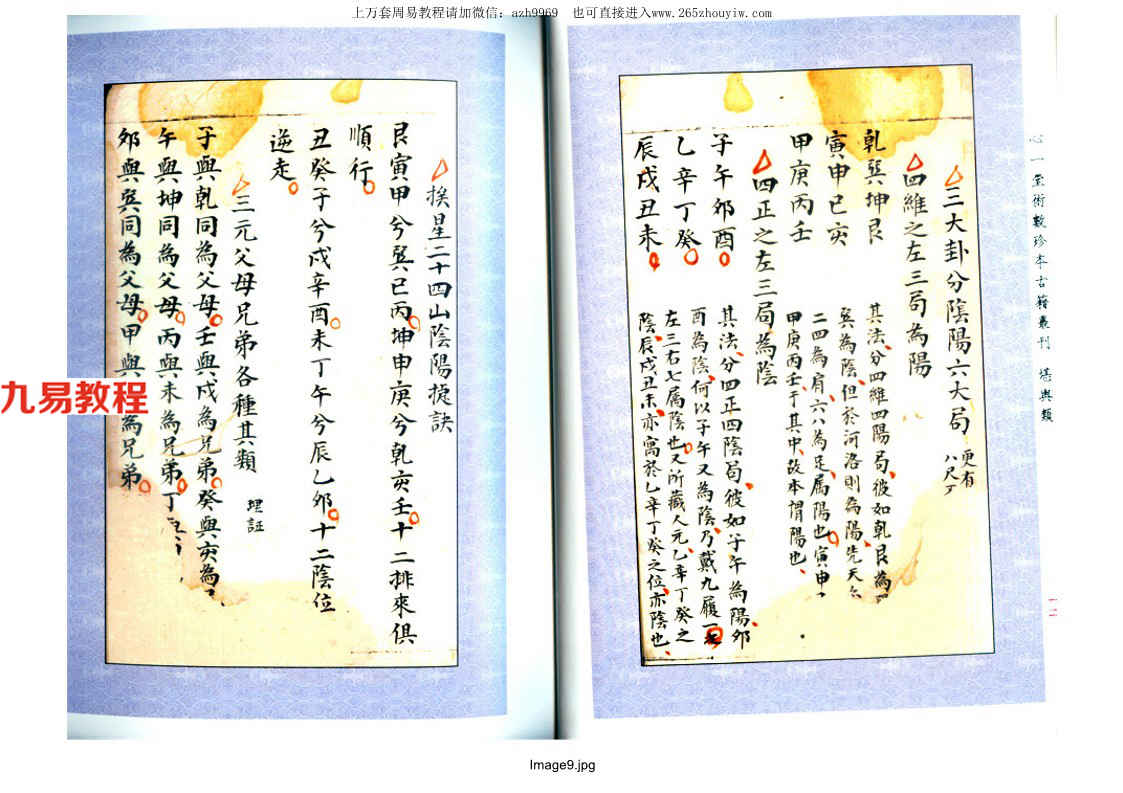 上万套周易教程请加微信：azh9969　也可直接进入www.265zhouyiw.com
心一堂術數珍本古籍叢刊　堪輿類
△三大卦分陰陽六大局　更有
△四維之左三局為陽
乾巽坤艮　其法、分四維四陽局、彼如乾艮為
寅申巳亥　巽為陰、但於河洛則為陽、先天
甲庚丙壬　二四為肩、六八為足、属陽也、寅申
甲庚丙壬、于其中、故本謂陽也、
△四正之左三局為陰
子午卯酉　其法、分四正四陰局、彼如子午為陽、卯
乙辛丁癸　酉為陰、何以子午又為陰、乃戴九履一
辰戌丑未　左三右七属陰也、又所藏人元、乙辛丁癸之
陰、辰戌丑未、亦寓於乙辛丁癸之位、亦陰也、
一二
△挨星二十四山陰陽捷訣
艮寅甲兮巽巳丙。坤申庚兮乾亥壬。十二排來俱
順行。
丑癸子兮戌辛酉。未丁午兮辰乙卯。十二陰位
逆走。
△三元父母兄弟各種其類　理証
子與乾同為父母。壬與戌為兄弟。癸與亥為
午與坤同為父母。丙與未為兄弟。丁
卯與巽同為父母。甲與　為兄弟。
九易教程
Image9.jpg